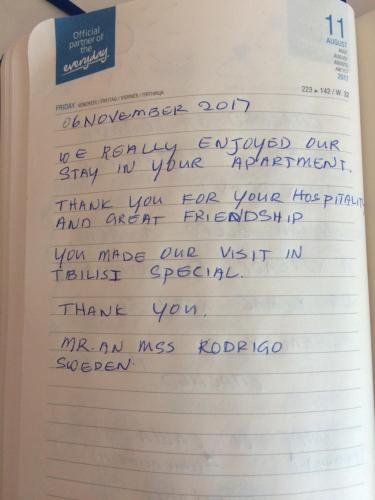 Official
partner of
the
everyday.
11
AUGUST
2017
FRIDAY VENDREDI / FREITAG / VIERNES / ПЯТНИЦА
223 ▸ 142 / W. 32
06 NOVEMBER 2017
WE REALLY ENJOYED OUR
STAY IN YOUR APARTMENT.
THANK YOU FOR YOUR HOSPITALIT
AND GREAT FRIENDSHIP
YOU MADE OUR VISIT IN
TBILISI SPECIAL.
THANK YOU.
MR. AN MSS RODRIGO
SWEDEN.